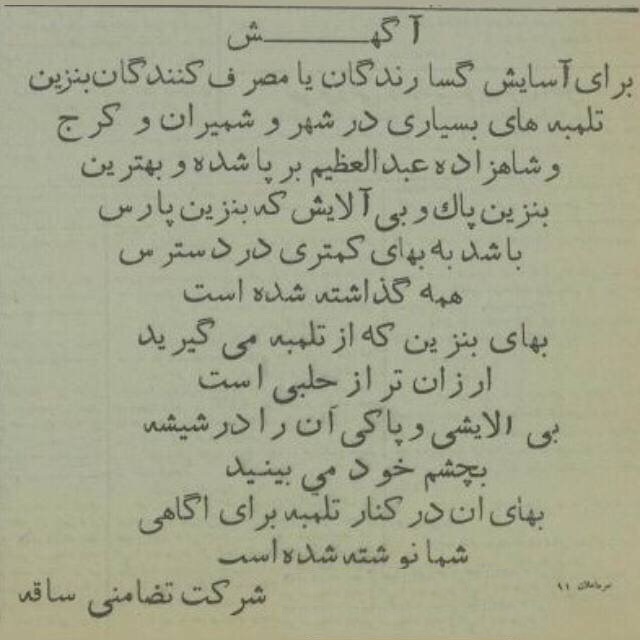 آگهش
برای آسایش گسارندگان یا مصرف کنندگان بنزین
تلمبه های بسیاری در شهر و شمیران و کرج
و شاهزاده عبدالعظیم بر پا شده و بهترین
بنزین پاك و بی آلایش که بنزین پارس
باشد به بهای کمتری در دسترس
همه گذاشته شده است
بهای بنزین که از تلمبه می گیرید
ارزان تر از حلبی است
بی الایشی و پاکی آن را در شیشه
بچشم خود می بینید
بهای ان در کنار تلمبه برای اگاهی
شما نوشته شده است
شرکت تضامنی ساقه
۱۱